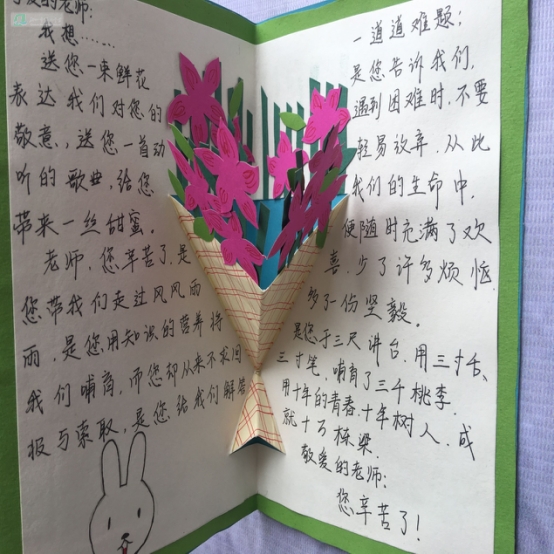 爱的老师:
我想……
送您一束鲜花
表达我们对您的
敬意,送您一首动
听的歌曲,给您
带来一丝甜蜜。
老师,您辛苦了,是
您带我们走过风风雨
雨,是您用知识的营养将
我们哺育,而您却从来不求回
报与索取,是您给我们解答
一道道难题;
是您告诉我们,
遇到困难时,不要
轻易放弃,从此
我们的生命中,
便随时充满了欢
喜,少了许多烦恼
多了一份坚毅。
是您于三尺讲台,用三寸舌、
三寸笔,哺育了三千桃李,
用十年的青春,十年树人,成
就十万栋梁。
敬爱的老师:
您辛苦了!